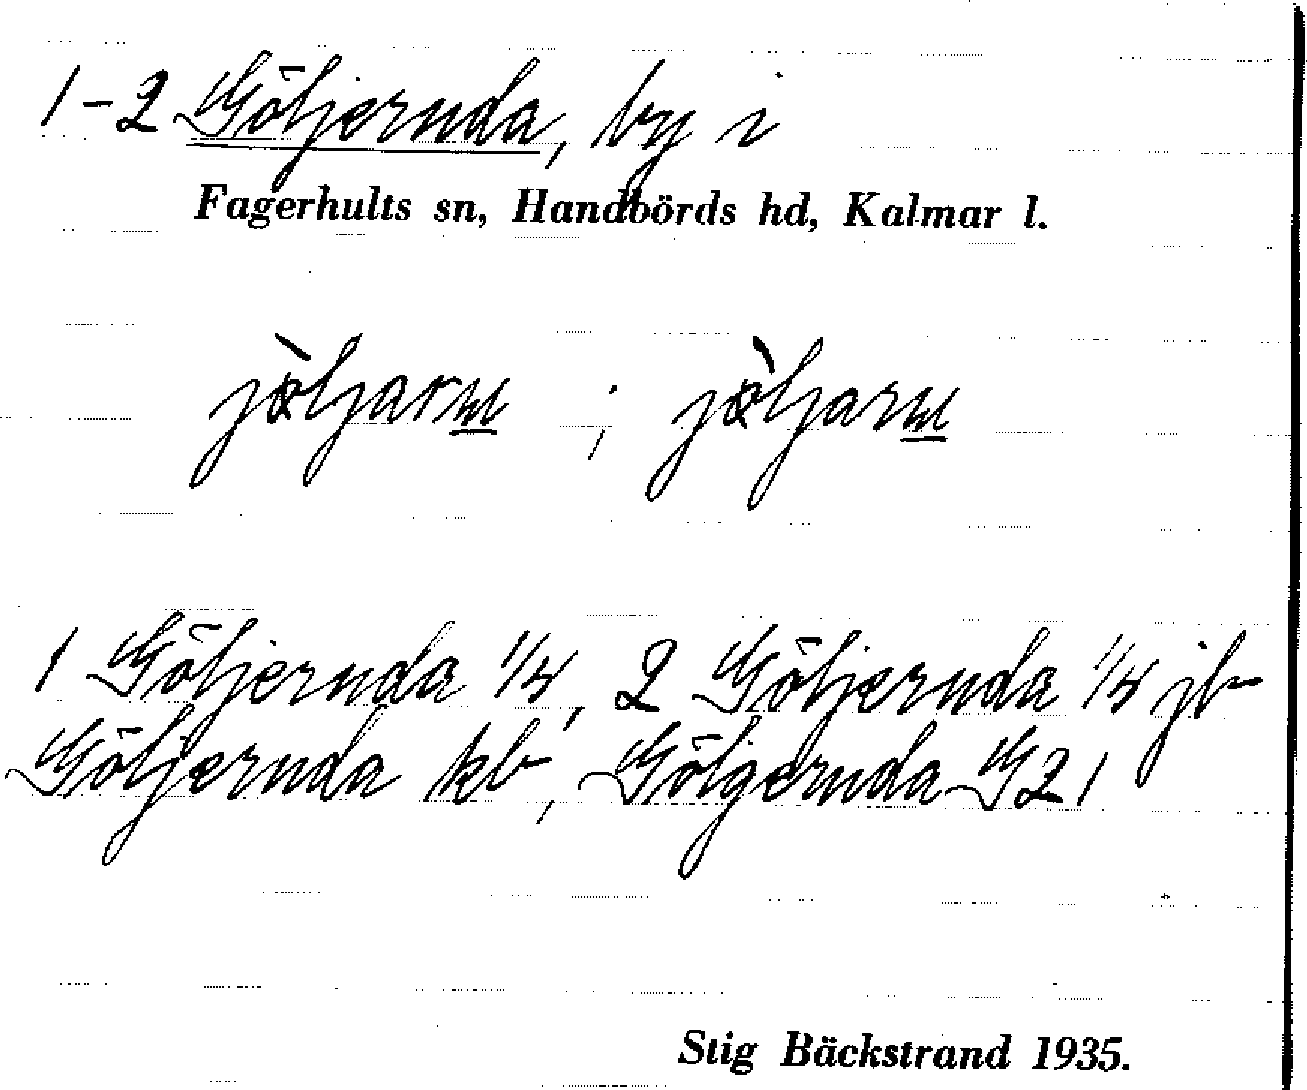 1-2 Göljernda, by i
Fagerhults sn, Handbörds hd, Kalmar l.
1 Göljernda 1/4, 2 Göljernda 1/4 jb
Göljernda kb, Gölgernda G21
Stig Bäckstrand 1935.